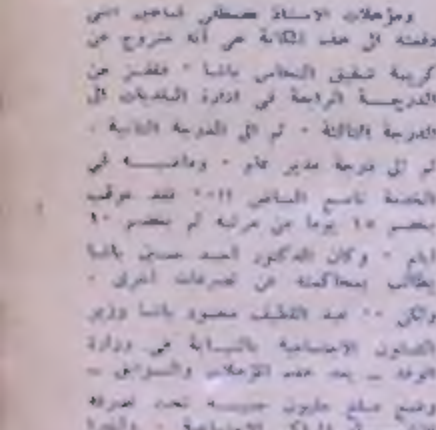 ومؤهلات الاستاذ مصطفى التى
رفعته الى هذه المكانة هى أنه متزوج من
كريمة شقيق النحاس باشا . فقفز من
الدرجة الرابعة فى ادارة البلديات الى
الدرجة الثالثة . ثم الى الدرجة الثانية .
ثم الى درجة مدير عام . فى
الخدمة ناصع البياض !! . فقد عوقب
بخصم ١٥ يوما من مرتبه ثم بخصم ١٠
ايام . وكان الدكتور احمد حسين باشا
يطالب بمحاكمته عن تصرفات أخرى .
ولكن .. عبد اللطيف محمود باشا وزير
الشئون الاجتماعية بالنيابة فى وزارة
الوفد ـ بعد هذه المؤهلات والسوابق ـ
وضع مبلغ مليون جنيه تحت تصرفه